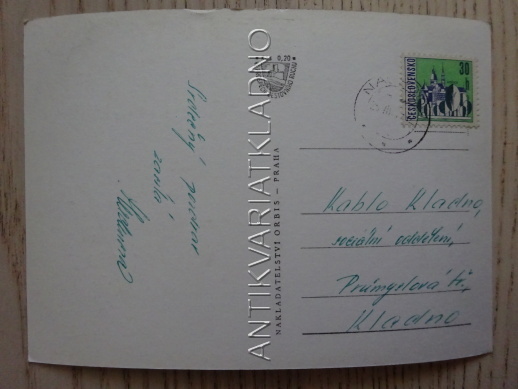 Srdečný pozdrav
zasílá
ANTIKVARIATKLADNO
NAKLADATELSTVÍ ORBIS – PRAHA
0,20
ČESKOSLOVENSKO
30
NA
Kablo Kladno,
sociální oddělení,
Průmyslová tř.,
Kladno